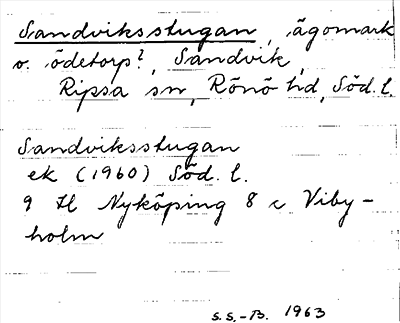 Sandviksstugan, ägomark
o. ödetorp?, Sandvik,
Ripsa sn, Rönö hd, Söd. l.
Sandviksstugan
ek (1960) Söd. l.
9 H Nyköping 8 c Viby-
holm
S.S.-B. 1963